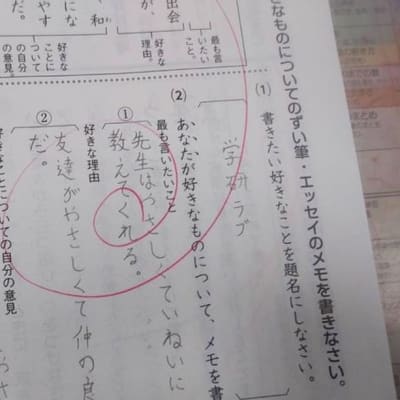 なものについてのずい筆・エッセイのメモを書きなさい。
(1) 書きたい好きなことを題名にしなさい。
学研ラブ
(2) あなたが好きなものについて、メモを書
最も言いたいこと
① 先生はやさしくていねいに
教えてくれる。
好きな理由
② 友達がやさしくて仲の良
だ。
好きなことについての自分の意見
最も言
いたい
こと。
出会
が、
好きな
理由。
、和
にな
やす
だ。
好きな
ことに
ついて
の自分
の意見